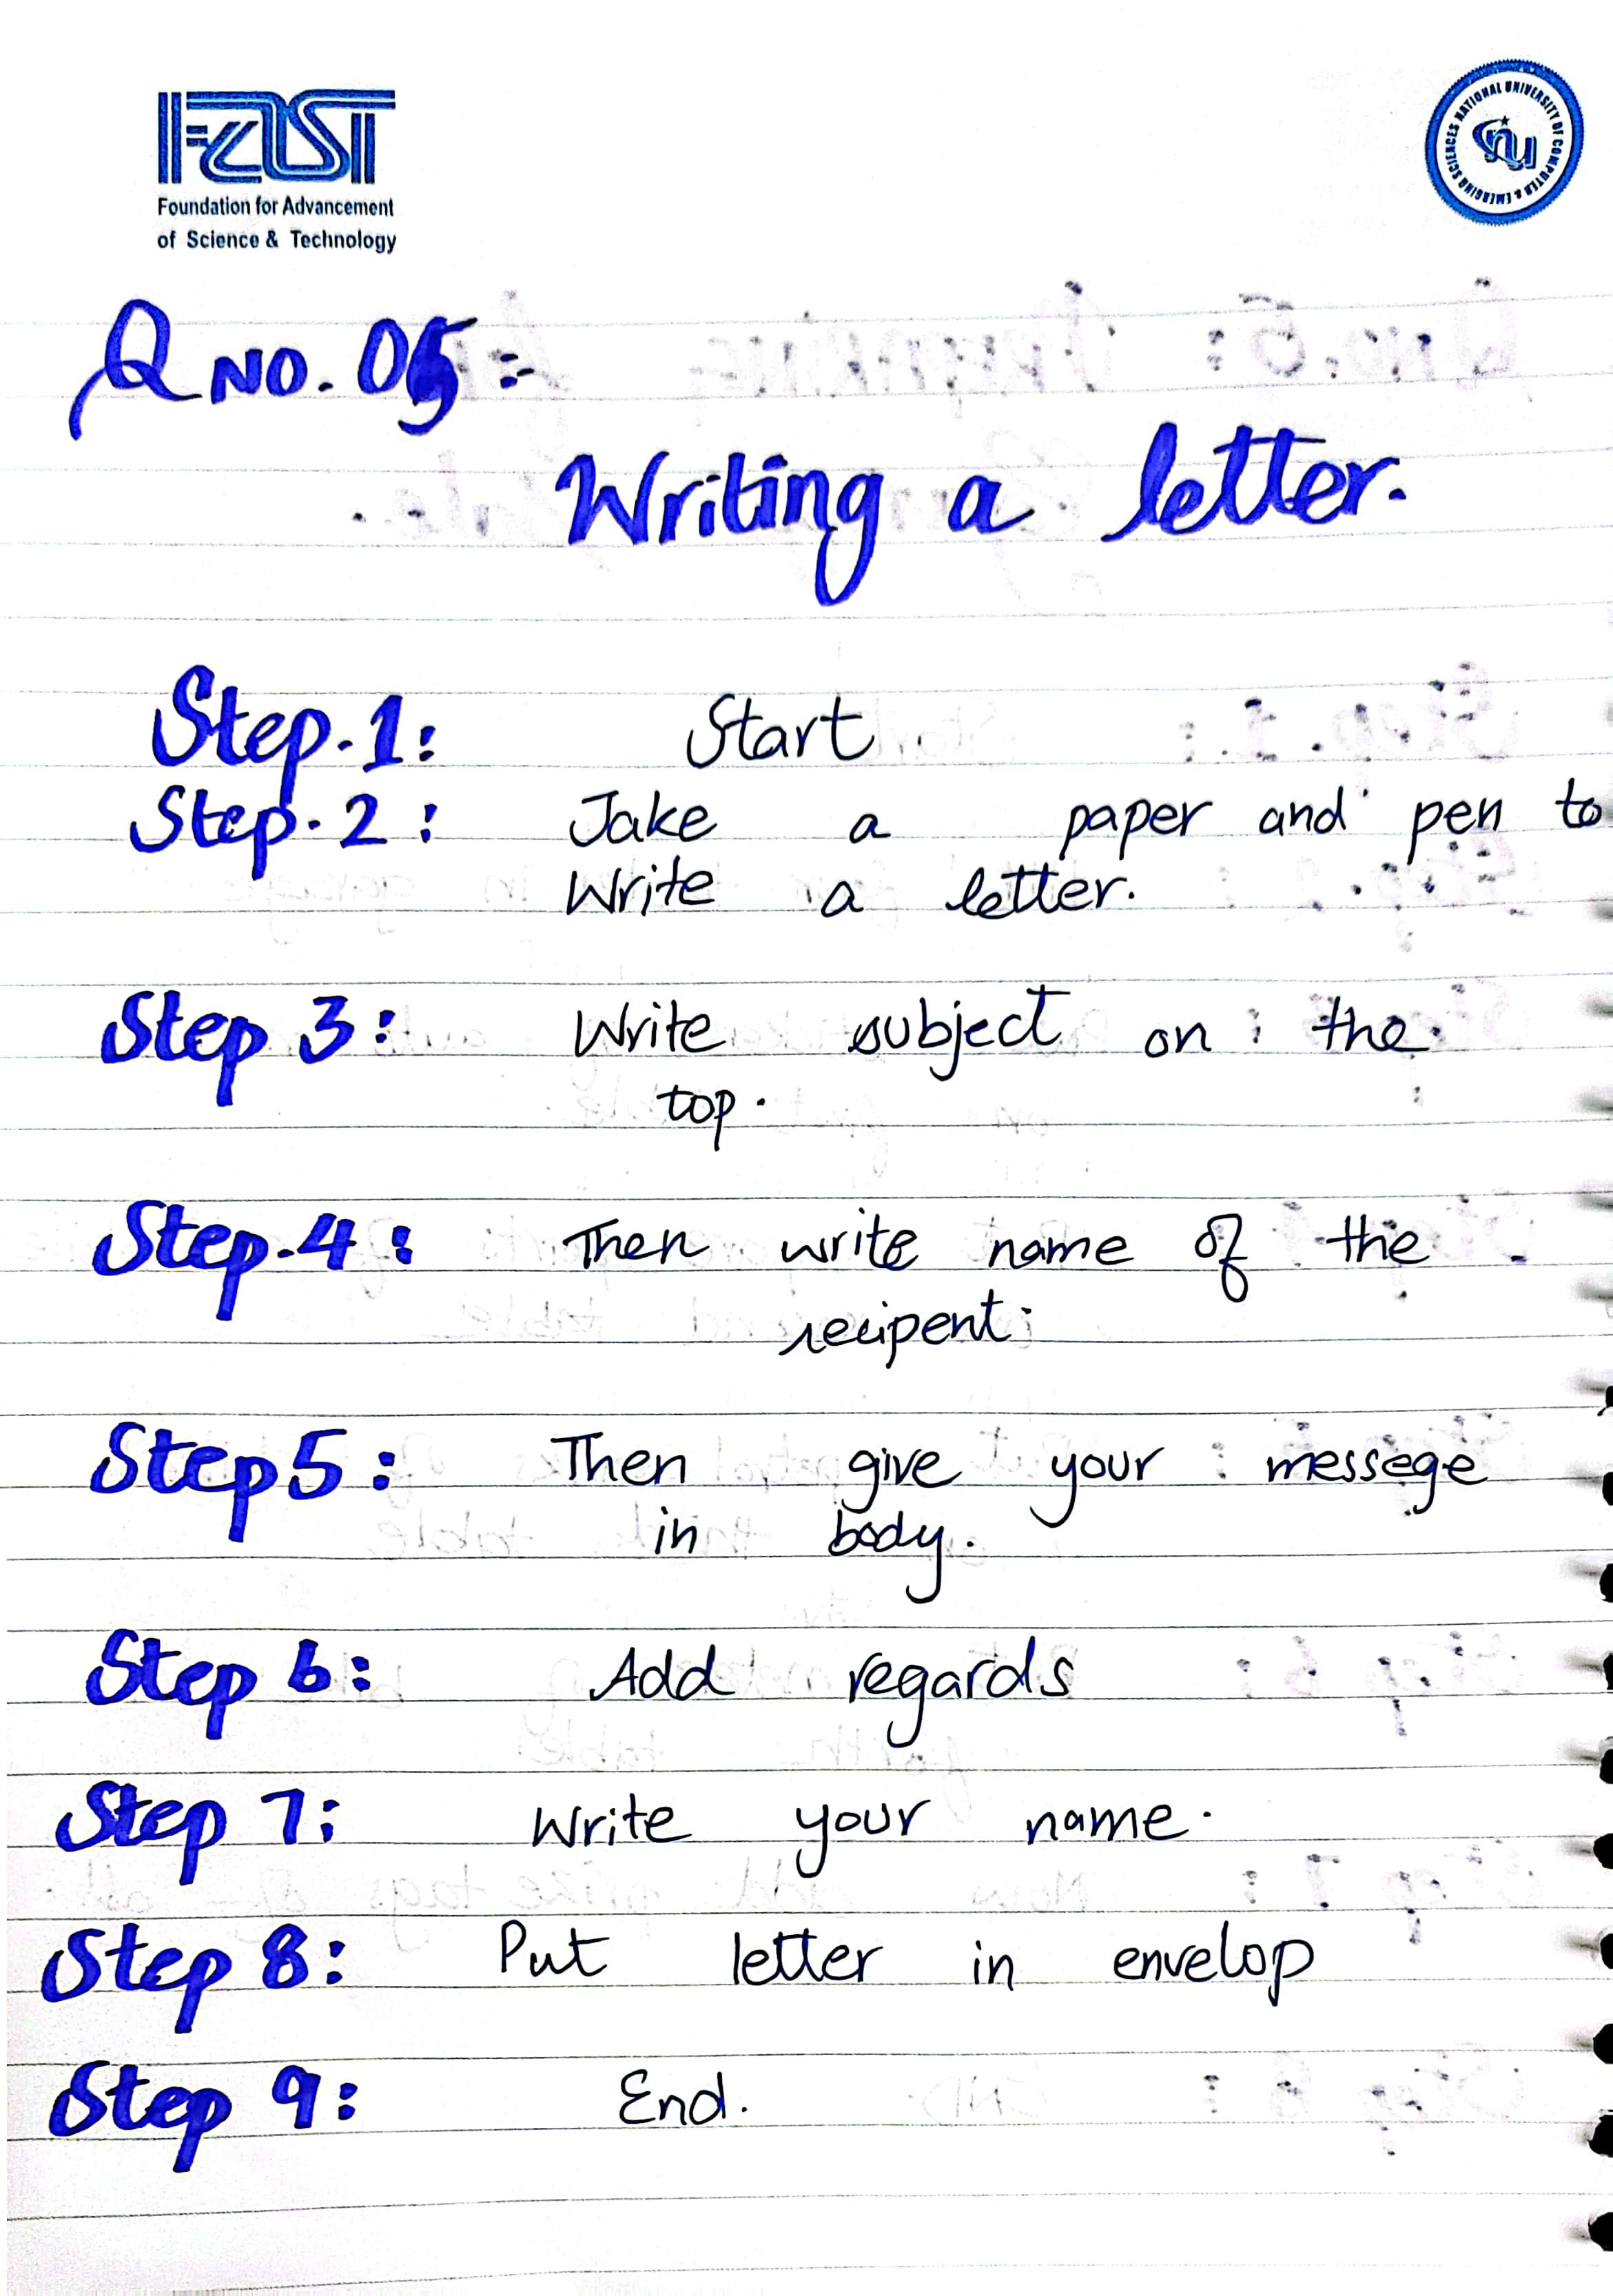 FAST
Foundation for Advancement
of Science & Technology
NATIONAL UNIVERSITY OF COMPUTER & EMERGING SCIENCES
Q NO. 05:-
Writing a letter.
Step.1: Start.
Step.2: Take a paper and pen to
Write a letter.
Step 3: Write subject on the
top.
Step.4: Then write name of the
recipent.
Step 5: Then give your messege
in body.
Step 6: Add regards
Step 7: Write your name.
Step 8: Put letter in envelop
Step 9: End.